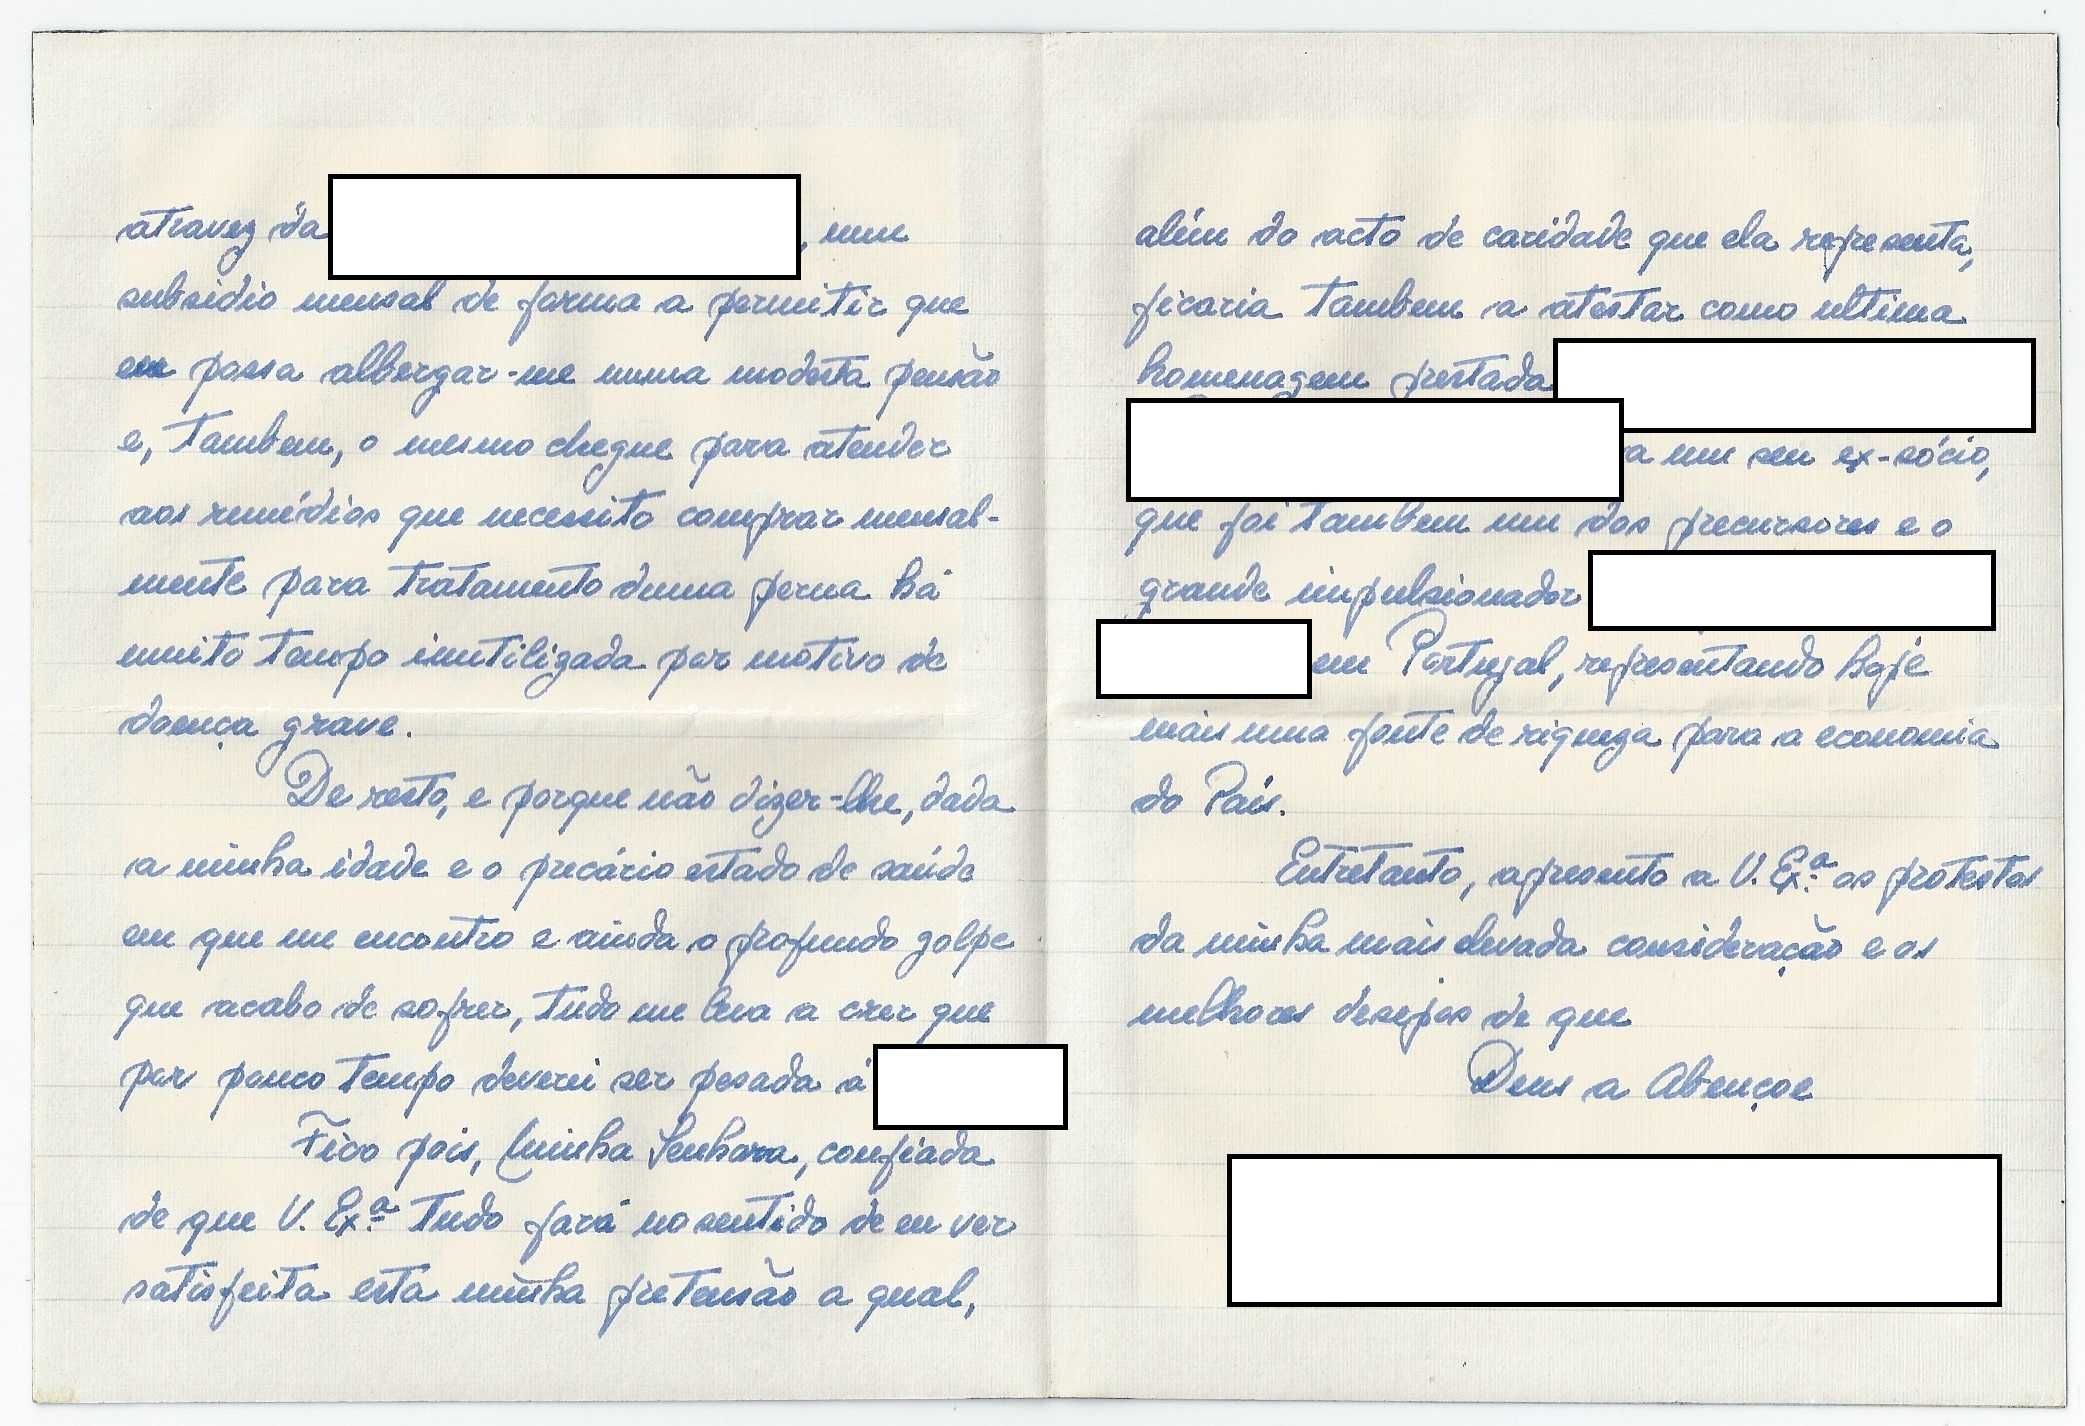 atravez da , um
subsidio mensal de forma a permitir que
eu possa albergar-me numa modesta pensão
e, tambem, o mesmo chegue para atender
aos remédios que necessito comprar mensal-
mente para tratamento duma perna há
muito tempo inutilizada por motivo de
doença grave.
De resto, e porque não dizer-lhe, dada
a minha idade e o precário estado de saúde
em que me encontro e ainda o profundo golpe
que acabo de sofrer, tudo me leva a crer que
por pouco tempo deverei ser pesada á
Fico pois, Minha Senhora, confiada
de que V. Ex.ª tudo fará no sentido de eu ver
satisfeita esta minha pretensão a qual,
além do acto de caridade que ela representa,
ficaria tambem a atestar como ultima
homenagem prestada
a um seu ex-sócio,
que foi tambem um dos precursores e o
grande impulsionador
em Portugal, representando hoje
mais uma fonte de riqueza para a economia
do País.
Entretanto, apresento a V. Ex.ª os protestos
da minha mais elevada consideração e os
melhores desejos de que
Deus a Abençoe